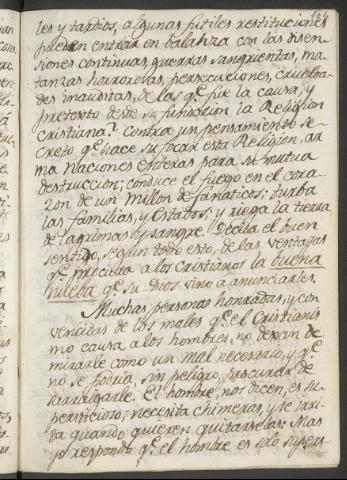 les y tardios, algunas fútiles restituciones
pueden entrar en balanza con las disen-
siones continuas, guerras sangrientas, ma-
tanzas horrorosas, persecuciones, cruelda-
des inauditas, de las qe. fue la causa, y
pretexto desde su fundacion la Religion
Cristiana? Contra un pensamiento se-
creto qe. hace sufocar esta Religion, ar
ma Naciones enteras para su mutua
destruccion; conduce el fuego en el cora-
zon de un millon de fanaticos; turba
las familias, y Estados; y riega la tierra
de lagrimas y sangre. Decida el buen
sentido, segun todo esto, de las ventajas
qe. procura a los cristianos la buena
nueba qe. su Dios vino a anunciarles.
Muchas personas honradas, y con
vencidas de los males qe. el Cristianis
mo causa a los hombres, no dexan de
mirarle como un mal necesario, y qe.
no se podria, sin peligro, procurar de
sarraigarle. El hombre, nos dicen, es su-
persticioso; necesita chimeras, y se irri-
ta quando quieren quitarselas. Mas
yo respondo qe. el hombre es solo supers-